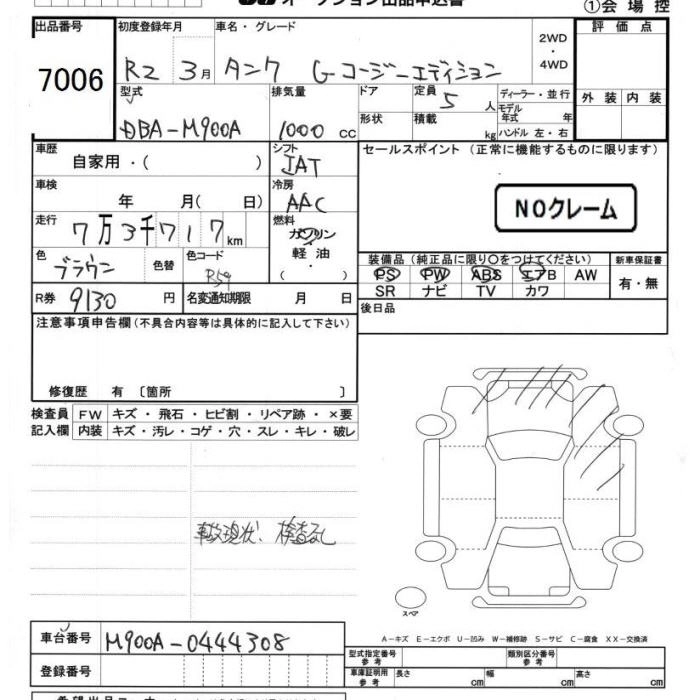 オークション出品申込書
①会場控
出品番号 初度登録年月 車名・グレード 2WD・4WD 評価点
7006 R2 3月 タンク G-コージーエディション
型式 排気量 ドア 定員 5人 ディーラー・並行 外装 内装
DBA-M900A 1000cc 形状 積載 kg モデル年式 年 ハンドル 左・右
車歴 シフト セールスポイント (正常に機能するものに限ります)
自家用・( ) IAT
車検 冷房
年 月( 日) AAC NOクレーム
走行 燃料
7万3千717km ガソリン・軽油・( )
色 色替 色コード 装備品 (純正品に限り○をつけてください) 新車保証書
ブラウン R59 PS PW ABS エアB AW 有・無
SR ナビ TV カワ
R券 9130円 名変通知期限 月 日 後日品
注意事項申告欄(不具合内容等は具体的に記入して下さい)
修復歴 有 〔箇所 〕
検査員 FW キズ・飛石・ヒビ割・リペア跡・×要
記入欄 内装 キズ・汚レ・コゲ・穴・スレ・キレ・破レ
事故現状、検査なし
スペア
A-キズ E-エクボ U-凹み W-補修跡 S-サビ C-腐食 XX-交換済
車台番号 M900A-0444308 型式指定番号 参考 類別区分番号 参考
登録番号 車庫証明用 参考 長さ cm 幅 cm 高さ cm